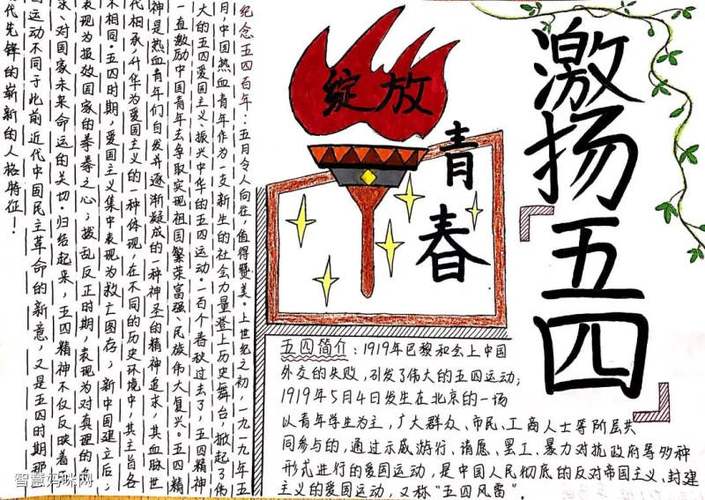 激扬
五四
绽放
青春
纪念五四百年:五月令人向往,值得赞美。上世纪之初,一九一九年五
月,中国热血青年作为一支新生的社会力量登上历史舞台,掀起了伟
大的五四爱国主义、振兴中华的五四运动。一百个春秋过去了,五四精神
一直激励中国青年去争取实现祖国繁荣富强、民族伟大复兴。五四精
神是热血青年们自发并逐渐凝成的一种神圣的精神追求,其血脉世
代相承,升华为爱国主义的一种体现,在不同的历史环境中,其主旨各
不相同。五四时期,爱国主义集中表现为救亡图存,新中国建立后,
表现为报效国家的拳拳之心;拨乱反正时期,表现为对真理的
求、对国家未来命运的关切。归结起来,五四精神不仅反映着
国运动不同于此前近代中国民主革命的新意,又是五四时期那
代先锋的崭新的人格特征!
五四简介:1919年巴黎和会上中国
外交的失败,引发了伟大的五四运动;
1919年5月4日发生在北京的一场
以青年学生为主,广大群众、市民、工商人士等阶层共
同参与的,通过示威游行、请愿、罢工、暴力对抗政府等多种
形式进行的爱国运动,是中国人民彻底的反对帝国主义、封建
主义的爱国运动,又称"五四风雷"。